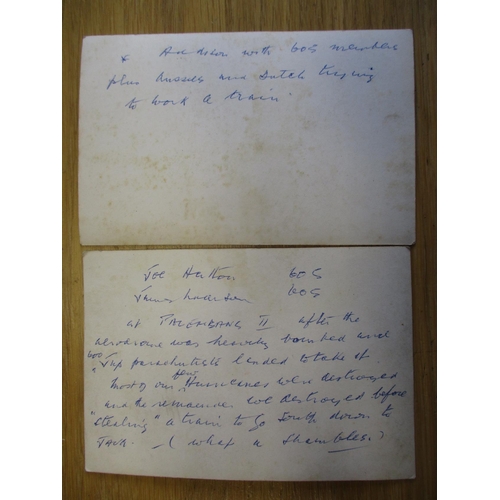 with 605 members
plus Aussies and Dutch trying
to work a train
Joe Hutton 605
James 605
at PALEMBANG II after the
aerodrome was heavily bombed and
600
"Jap parachutists landed to take it
Most of our few Hurricanes were destroyed
and the remainder we destroyed before
"stealing" a train to go South down to
JAVA. (what a shambles.)